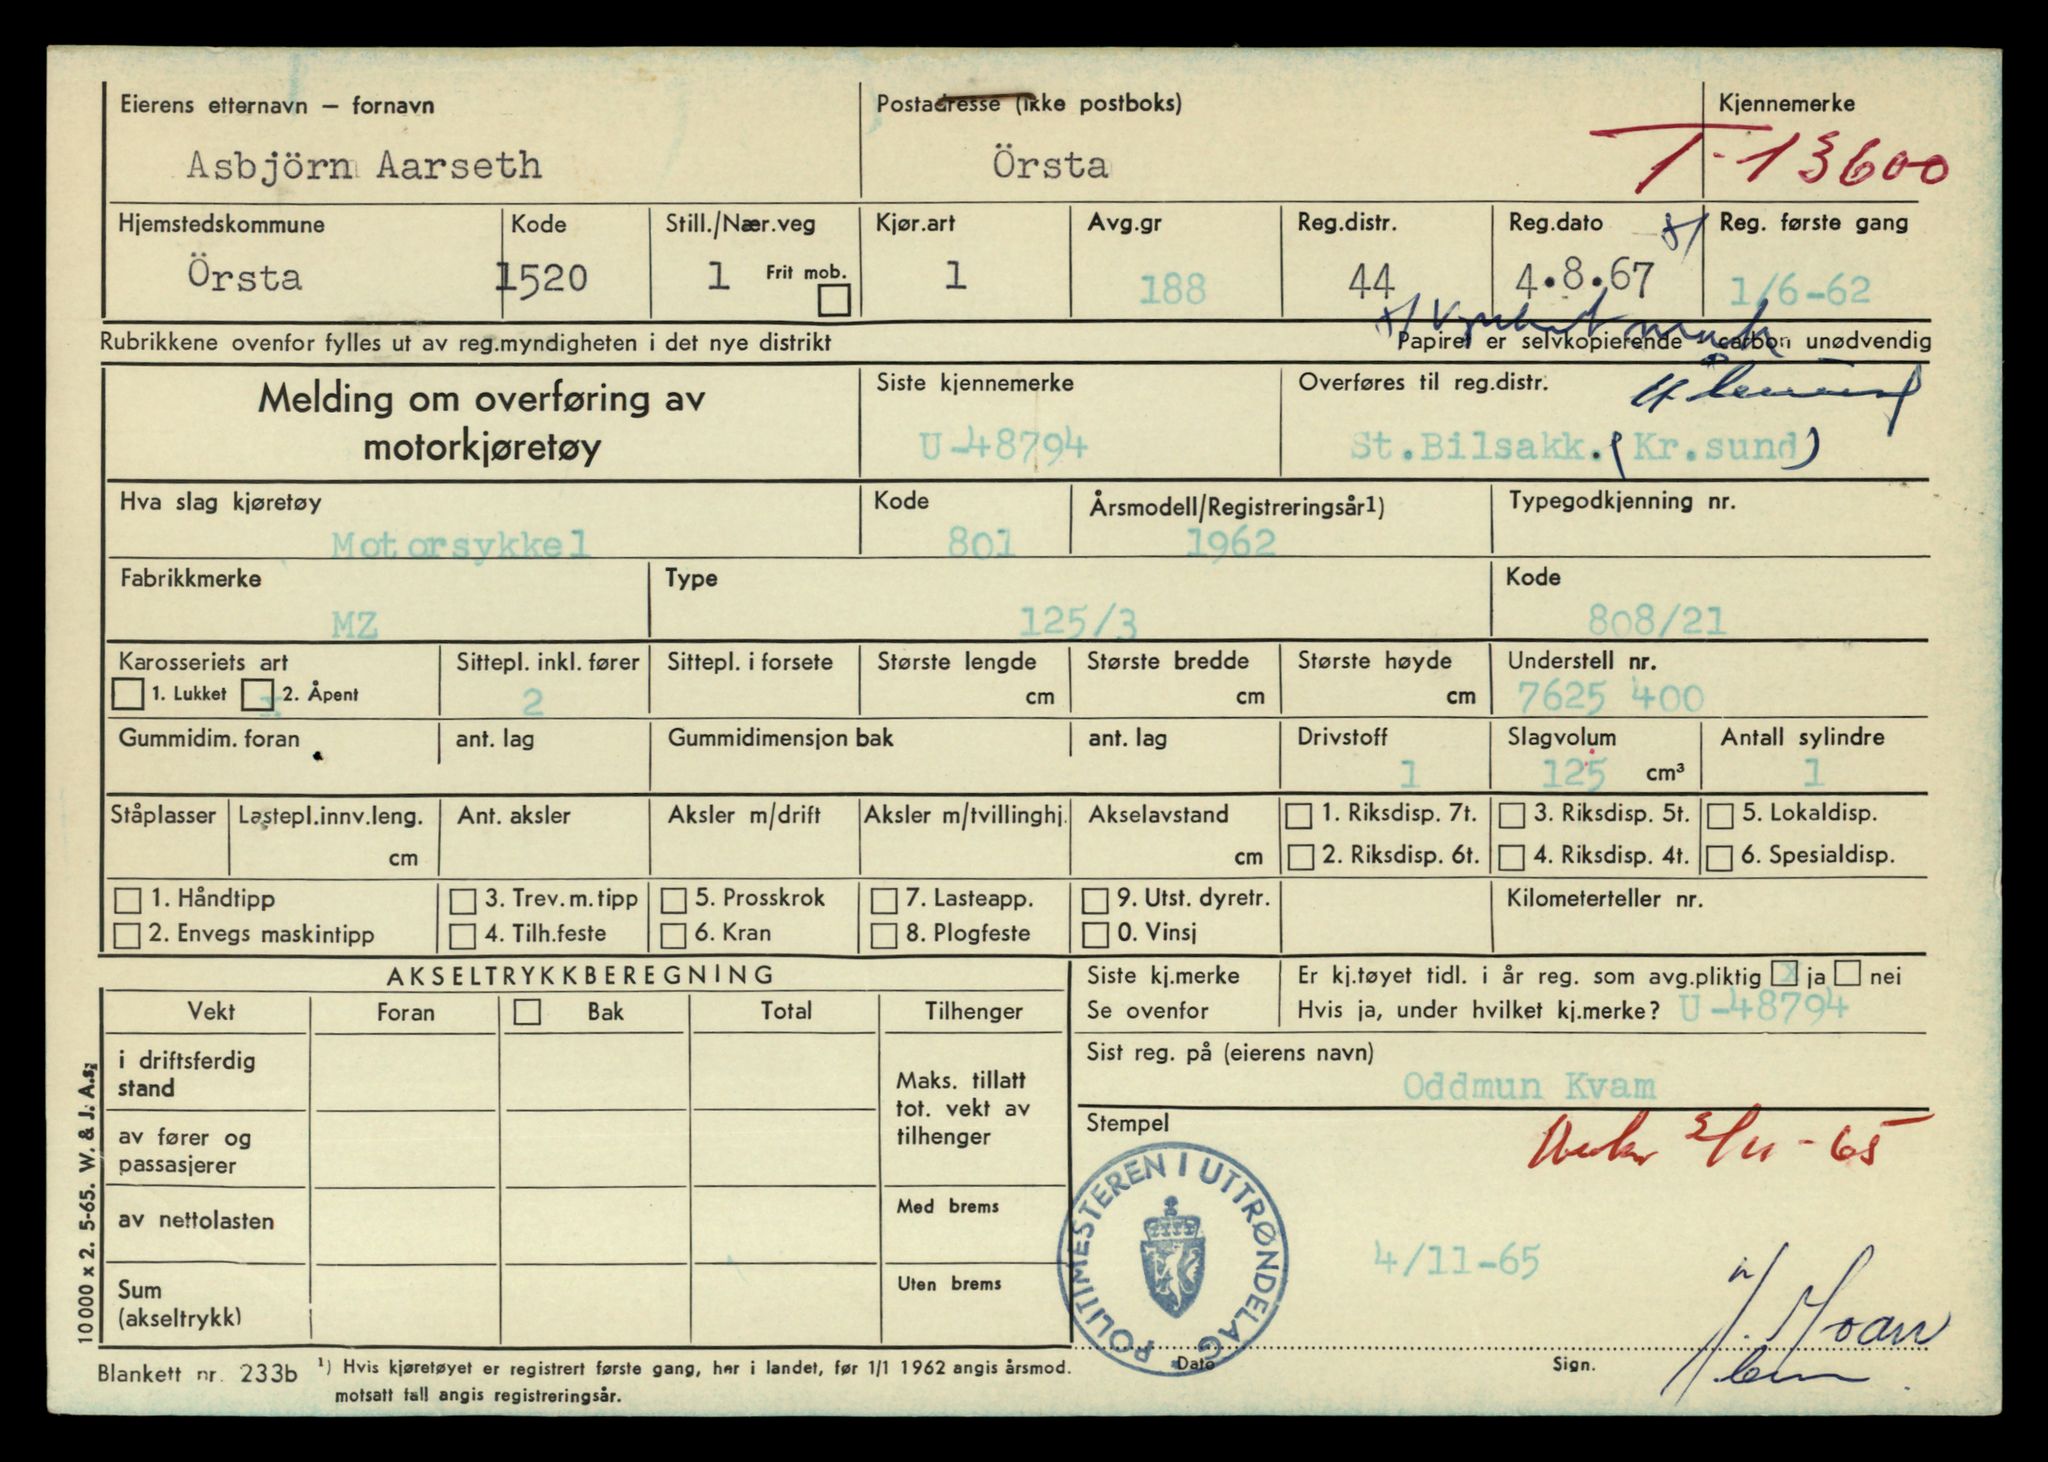 Eierens etternavn — fornavn Postadresse (ikke postboks) Kjennemerke
Asbjörn Aarseth Örsta T-13600
Hjemstedskommune Kode Still./Nær.veg Kjør.art Avg.gr Reg.distr. Reg.dato Reg. første gang
Örsta 1520 1 Frit mob. 1 188 44 4.8.67 1/6-62
Rubrikkene ovenfor fylles ut av reg.myndigheten i det nye distrikt Papiret er selvkopierende carbon unødvendig
Melding om overføring av Siste kjennemerke Overføres til reg.distr.
motorkjøretøy U-48794 St.Bilsakk.(Kr.sund)
Hva slag kjøretøy Kode Årsmodell/Registreringsår1) Typegodkjenning nr.
Motorsykkel 801 1962
Fabrikkmerke Type Kode
MZ 125/3 808/21
Karosseriets art Sittepl. inkl. fører Sittepl. i forsete Største lengde Største bredde Største høyde Understell nr.
1. Lukket x 2. Åpent 2 cm cm cm 7625 400
Gummidim. foran ant. lag Gummidimensjon bak ant. lag Drivstoff Slagvolum Antall sylindre
1 125 cm³ 1
Ståplasser Lastepl.innv.leng. Ant. aksler Aksler m/drift Aksler m/tvillinghj. Akselavstand 1. Riksdisp. 7t. 3. Riksdisp. 5t. 5. Lokaldisp.
cm cm 2. Riksdisp. 6t. 4. Riksdisp. 4t. 6. Spesialdisp.
1. Håndtipp 3. Trev. m. tipp 5. Prosskrok 7. Lasteapp. 9. Utst. dyretr. Kilometerteller nr.
2. Envegs maskintipp 4. Tilh.feste 6. Kran 8. Plogfeste 0. Vinsj
AKSELTRYKKBEREGNING Siste kj.merke Er kj.tøyet tidl. i år reg. som avg.pliktig x ja nei
Vekt Foran Bak Total Tilhenger Se ovenfor Hvis ja, under hvilket kj.merke? U-48794
i driftsferdig Sist reg. på (eierens navn)
stand Maks. tillatt Oddmun Kvam
tot. vekt av
av fører og tilhenger Stempel
passasjerer 5/11-65
av nettolasten Med brems
POLITIMESTEREN I UTTRØNDELAG
4/11-65
Sum Uten brems
(akseltrykk)
Dato Sign.
Blankett nr. 233b 1) Hvis kjøretøyet er registrert første gang, her i landet, før 1/1 1962 angis årsmod.
motsatt fall angis registreringsår.
10000 x 2. 5-65. W. & J. A.s.